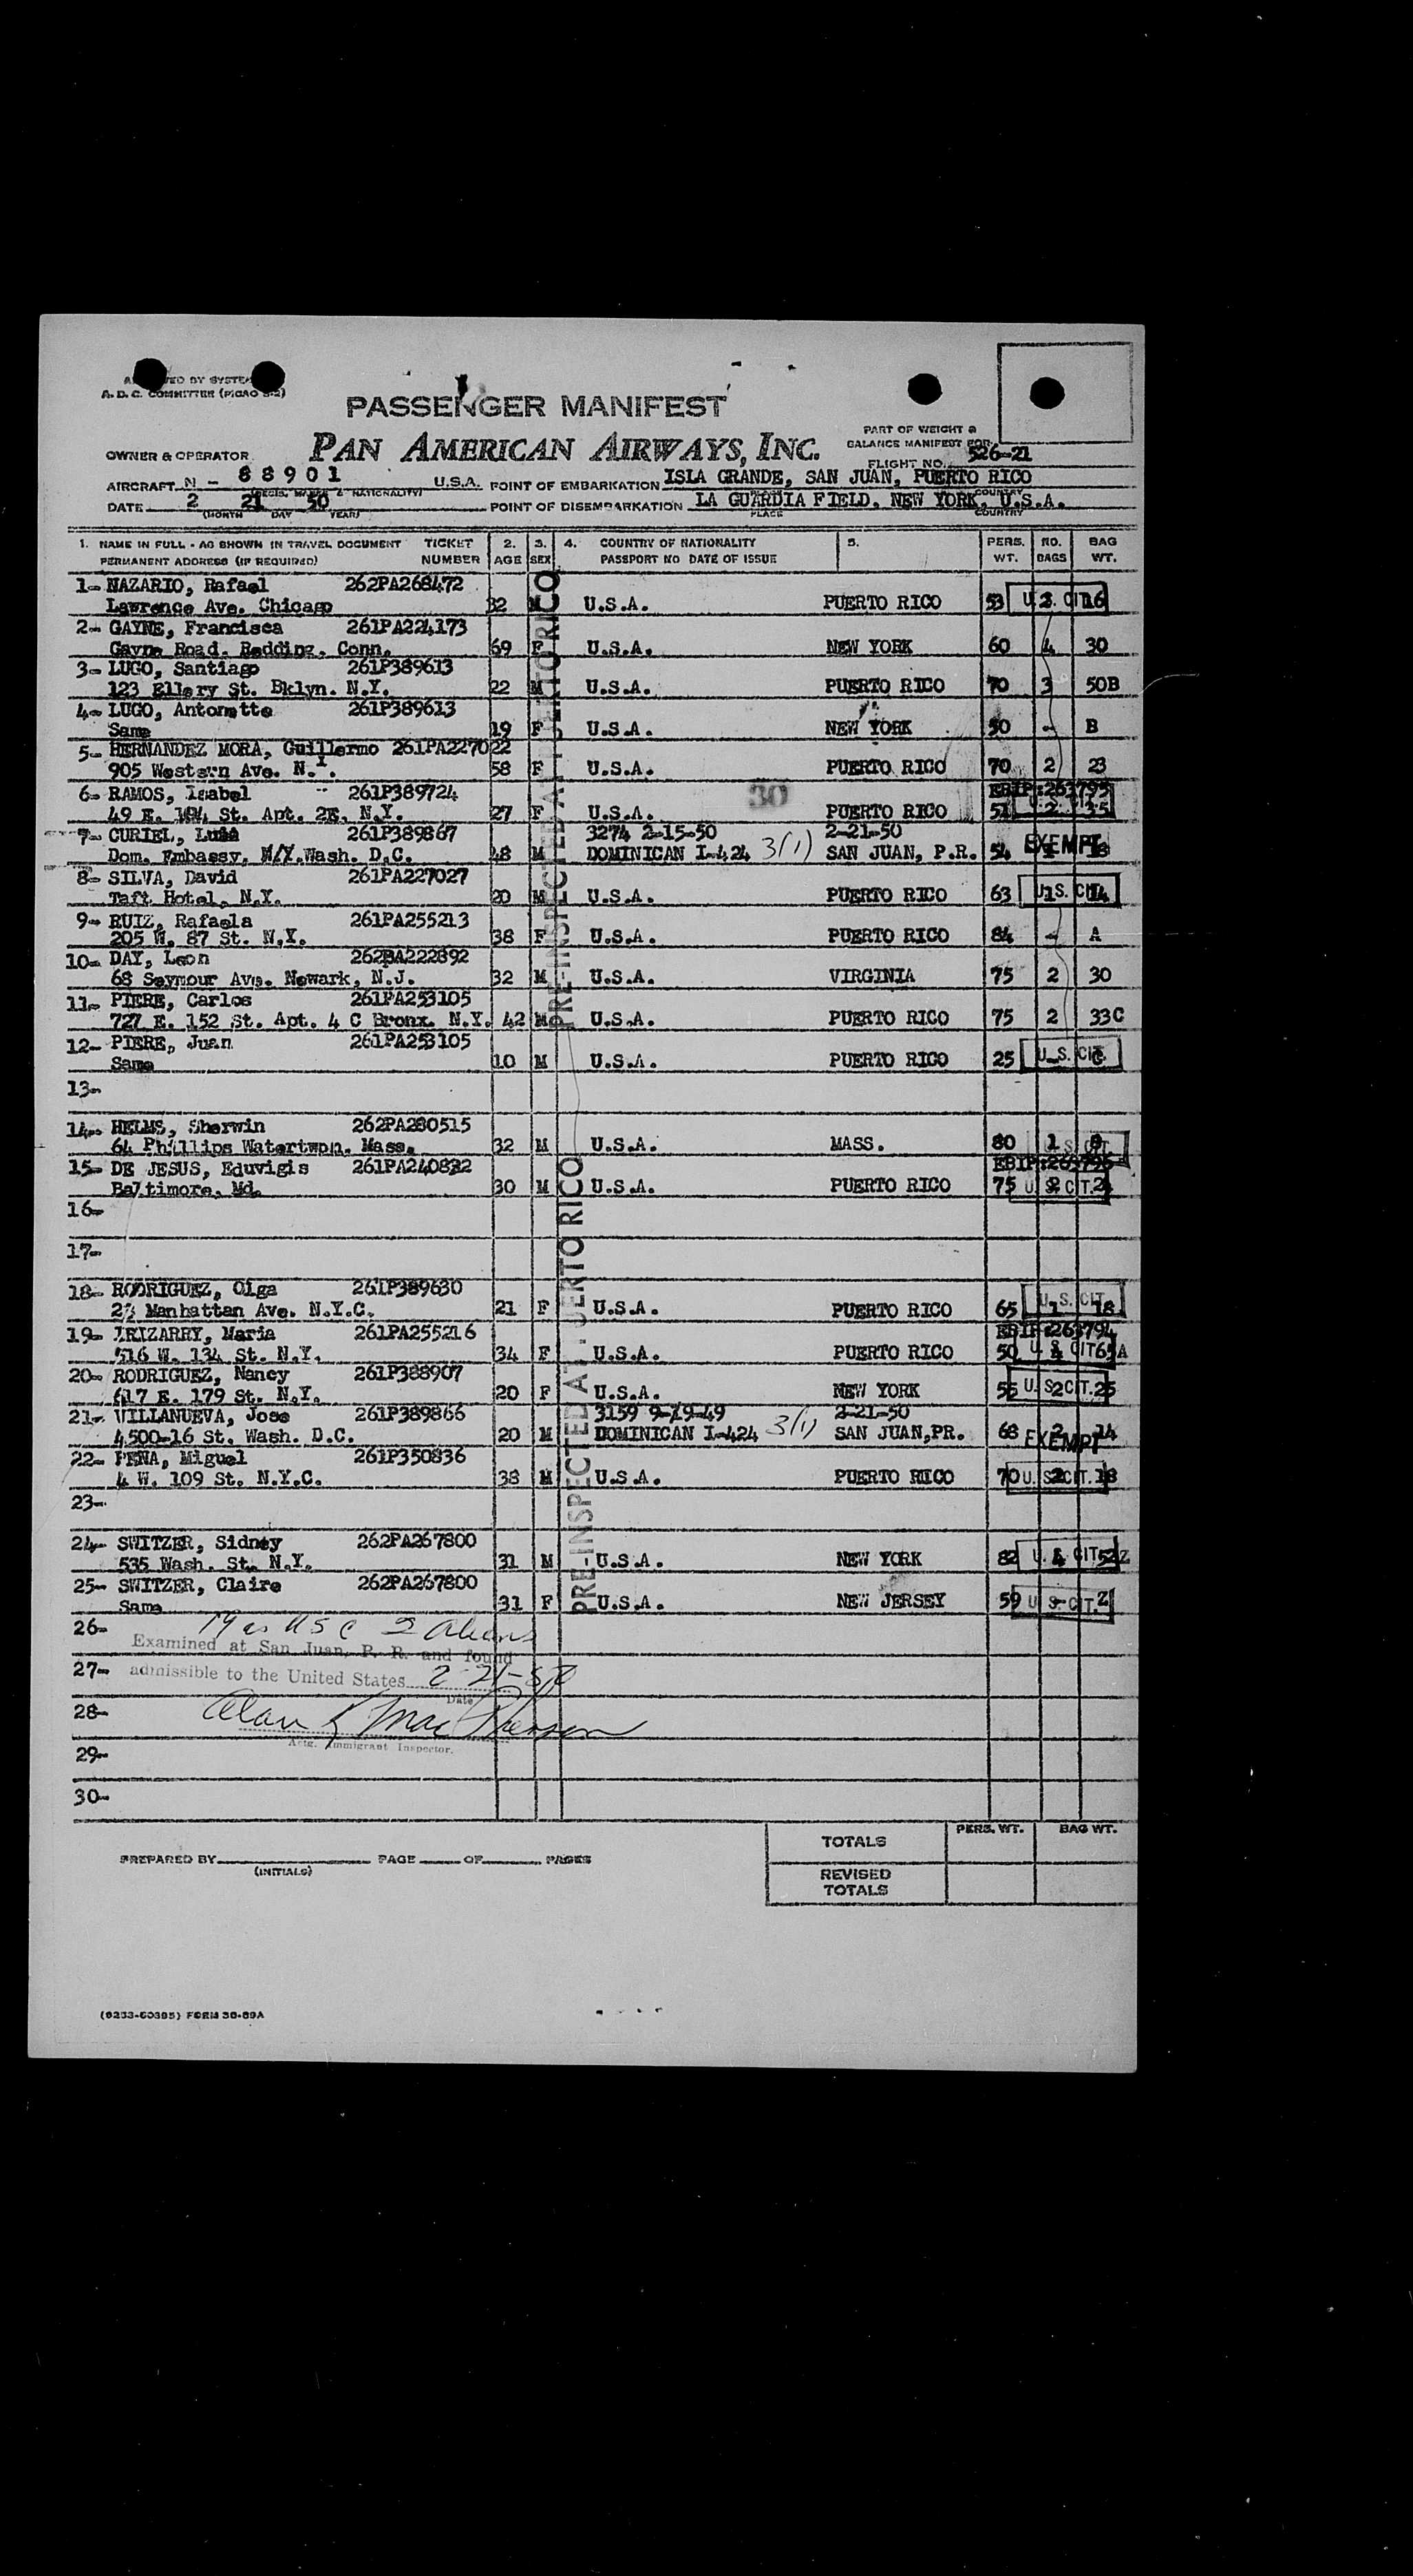 A. D. C. COMMITTEE (PICAO S-2)
PASSENGER MANIFEST
PART OF WEIGHT &
BALANCE MANIFEST FOR
OWNER & OPERATOR PAN AMERICAN AIRWAYS, INC.
FLIGHT NO. 526-21
AIRCRAFT N - 88901 U.S.A. POINT OF EMBARKATION ISLA GRANDE, SAN JUAN, PUERTO RICO
DATE 2 21 50 POINT OF DISEMBARKATION LA GUARDIA FIELD, NEW YORK, U.S.A.
(MONTH DAY YEAR) PLACE COUNTRY
1. NAME IN FULL - AS SHOWN IN TRAVEL DOCUMENT TICKET 2. 3. 4. COUNTRY OF NATIONALITY 5. PERS. NO. BAG
PERMANENT ADDRESS (IF REQUIRED) NUMBER AGE SEX PASSPORT NO DATE OF ISSUE WT. BAGS WT.
1- NAZARIO, Rafael 262PA268472
Lawrence Ave. Chicago 32 M U.S.A. PUERTO RICO 53 U.S. CIT. 16
2- GAYNE, Francisca 261PA224173
Gayne Road. Redding, Conn. 69 F U.S.A. NEW YORK 60 4 30
3- LUGO, Santiago 261P389613
123 Ellery St. Bklyn. N.Y. 22 M U.S.A. PUERTO RICO 70 3 50B
4- LUGO, Antonette 261P389613
Same 19 F U.S.A. NEW YORK 50 - B
5- HERNANDEZ MORA, Guillermo 261PA227022
905 Western Ave. N.Y. 58 F U.S.A. PUERTO RICO 70 2 23
6- RAMOS, Isabel 261P389724 30 EBIP:263795
49 E. 104 St. Apt. 2E, N.Y. 27 F U.S.A. PUERTO RICO 51 2 35
7- CURIEL, Luis 261P389867 3274 2-15-50 2-21-50
Dom. Embassy, N/Y.Wash. D.C. 48 M DOMINICAN I-424 3(1) SAN JUAN, P.R. 54 EXEMPT
8- SILVA, David 261PA227027
Taft Hotel, N.Y. 20 M U.S.A. PUERTO RICO 63 U.S. CIT. 1 14
9- RUIZ, Rafaela 261PA255213
205 W. 87 St. N.Y. 38 F U.S.A. PUERTO RICO 84 - A
10- DAY, Leon 262PA222892
68 Seymour Ave. Newark, N.J. 32 M U.S.A. VIRGINIA 75 2 30
11- PIERE, Carlos 261PA253105
727 E. 152 St. Apt. 4 C Bronx. N.Y. 42 M U.S.A. PUERTO RICO 75 2 33C
12- PIERE, Juan 261PA253105
Same 10 M U.S.A. PUERTO RICO 25 U.S. CIT. - C
13-
14- HELMS, Sherwin 262PA280515
64 Phillips Watertwon. Mass. 32 M U.S.A. MASS. 80 1 U.S. CIT.
15- DE JESUS, Eduvigis 261PA240832 EBIP:263796
Baltimore, Md. 30 M U.S.A. PUERTO RICO 75 U.S. CIT. 2 24
16-
17-
18- RODRIGUEZ, Olga 261P389630
23 Manhattan Ave. N.Y.C. 21 F U.S.A. PUERTO RICO 65 U.S. CIT. 1 18
19- IRIZARRY, Maria 261PA255216 EBIP:263794
516 W. 134 St. N.Y. 34 F U.S.A. PUERTO RICO 50 U.S. CIT. 4 65A
20- RODRIGUEZ, Nancy 261P388907
617 E. 179 St. N.Y. 20 F U.S.A. NEW YORK 55 U.S. CIT. 2 25
21- VILLANUEVA, Jose 261P389866 3159 9-19-49 2-21-50
4500-16 St. Wash. D.C. 20 M DOMINICAN I-424 3(1) SAN JUAN,PR. 68 2 14 EXEMPT
22- PENA, Miguel 261P350836
4 W. 109 St. N.Y.C. 38 M U.S.A. PUERTO RICO 70 U.S. CIT. 2 18
23-
24- SWITZER, Sidney 262PA267800
535 Wash. St. N.Y. 31 M U.S.A. NEW YORK 82 U.S. CIT. 4 52Z
25- SWITZER, Claire 262PA267800
Same 31 F U.S.A. NEW JERSEY 59 U.S. CIT. - Z
PRE-INSPECTED AT PUERTO RICO
PRE-INSPECTED AT PUERTO RICO
26- 19 as USC 2 Aliens
Examined at San Juan, P. R. and found
27- admissible to the United States 2-21-50
Date
28- Alan K MacPherson
Actg. Immigrant Inspector.
29-
30-
PERS. WT. BAG WT.
TOTALS
PREPARED BY PAGE OF PAGES
(INITIALS)
REVISED
TOTALS
(6233-50395) FORM 30-89A